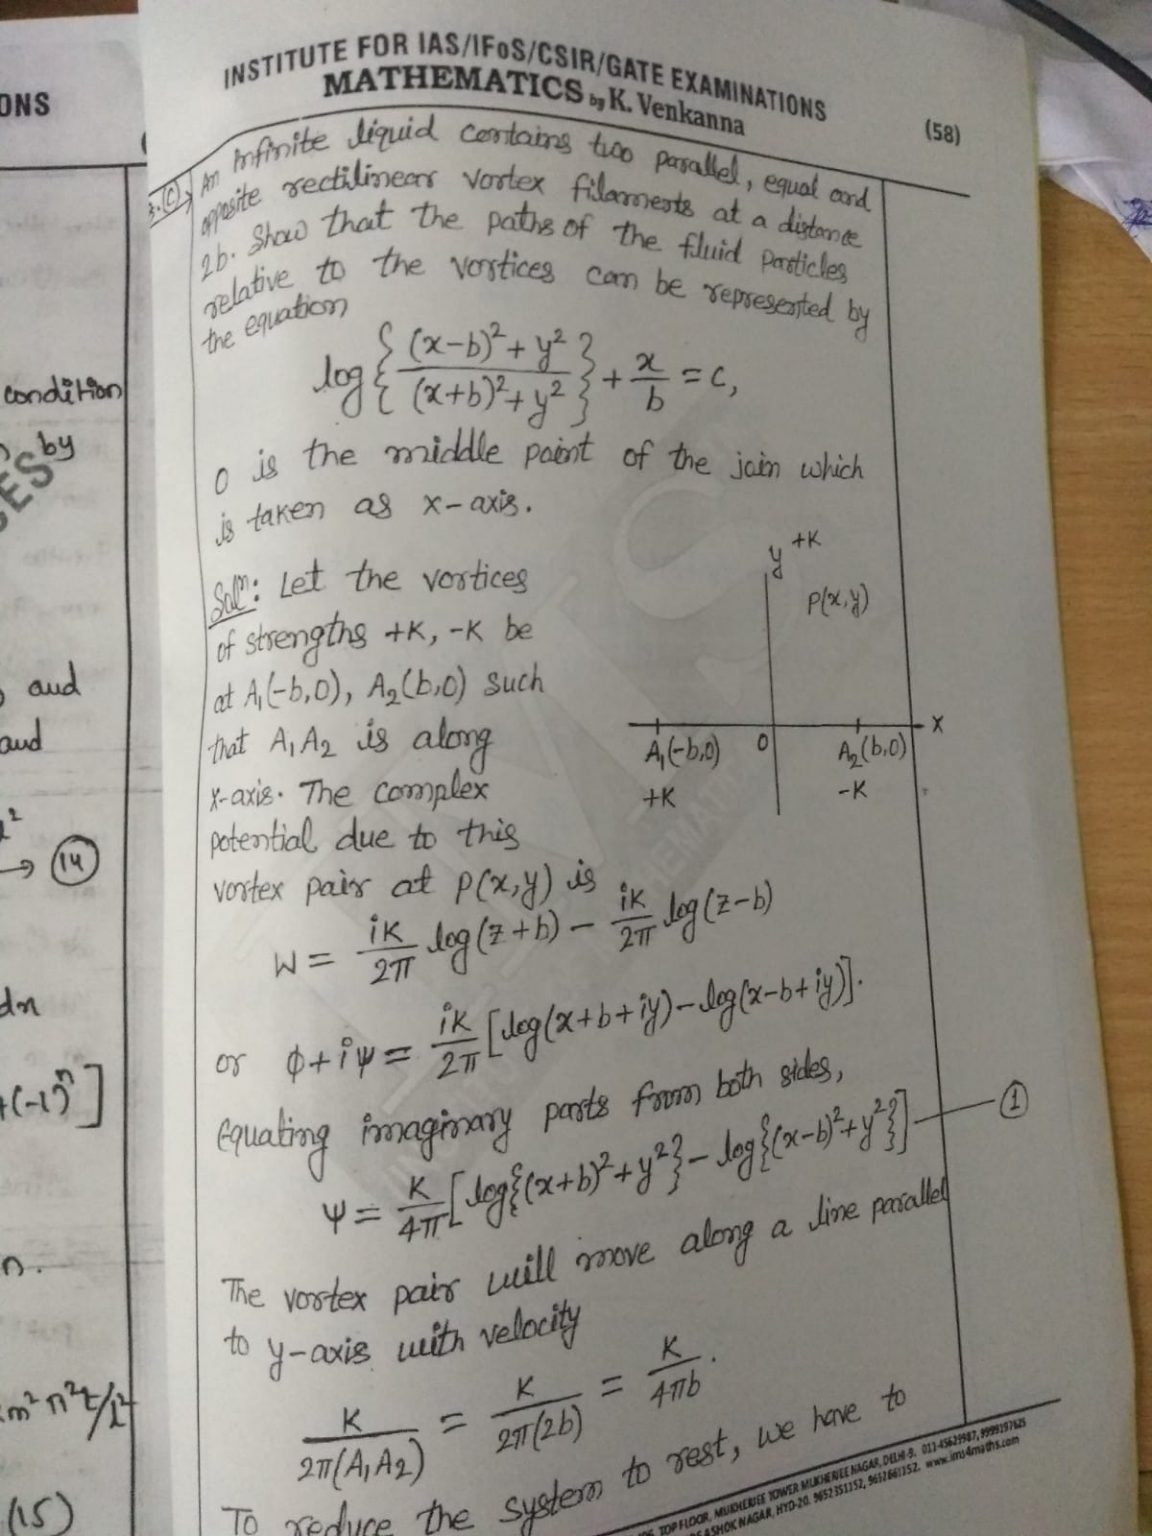 INSTITUTE FOR IAS/IFoS/CSIR/GATE EXAMINATIONS
MATHEMATICS by K. Venkanna
(58)
3.(C)→ An infinite liquid contains two parallel, equal and
opposite rectilinear vortex filaments at a distance
2b. Show that the paths of the fluid particles
relative to the vortices can be represented by
the equation
log{((x-b)²+y²)/((x+b)²+y²)} + x/b = c,
O is the middle point of the join which
is taken as x-axis.
Solⁿ: Let the vortices
of strengths +K, -K be
at A₁(-b,0), A₂(b,0) such
that A₁A₂ is along
x-axis. The complex
potential due to this
vortex pair at P(x,y) is
y +K
P(x,y)
X
A₁(-b,0) O A₂(b,0)
+K -K
W = iK/2π log(z+b) - iK/2π log(z-b)
or φ+iψ = iK/2π [log(x+b+iy)-log(x-b+iy)].
Equating imaginary parts from both sides,
ψ = K/4π [log{(x+b)²+y²}-log{(x-b)²+y²}] — ①
The vortex pair will move along a line parallel
to y-axis with velocity
K/2π(A₁A₂) = K/2π(2b) = K/4πb.
To reduce the system to rest, we have to
TOP FLOOR, MUKHERJEE TOWER MUKHERJEE NAGAR, DELHI-9. 011-45629987, 9999197625
ASHOK NAGAR, HYD-20. 9652351152, 9652661152. www.ims4maths.com
ONS
condition
by
SES
and
and
→ ⑭
dn
+(-1)ⁿ]
n.
(15)